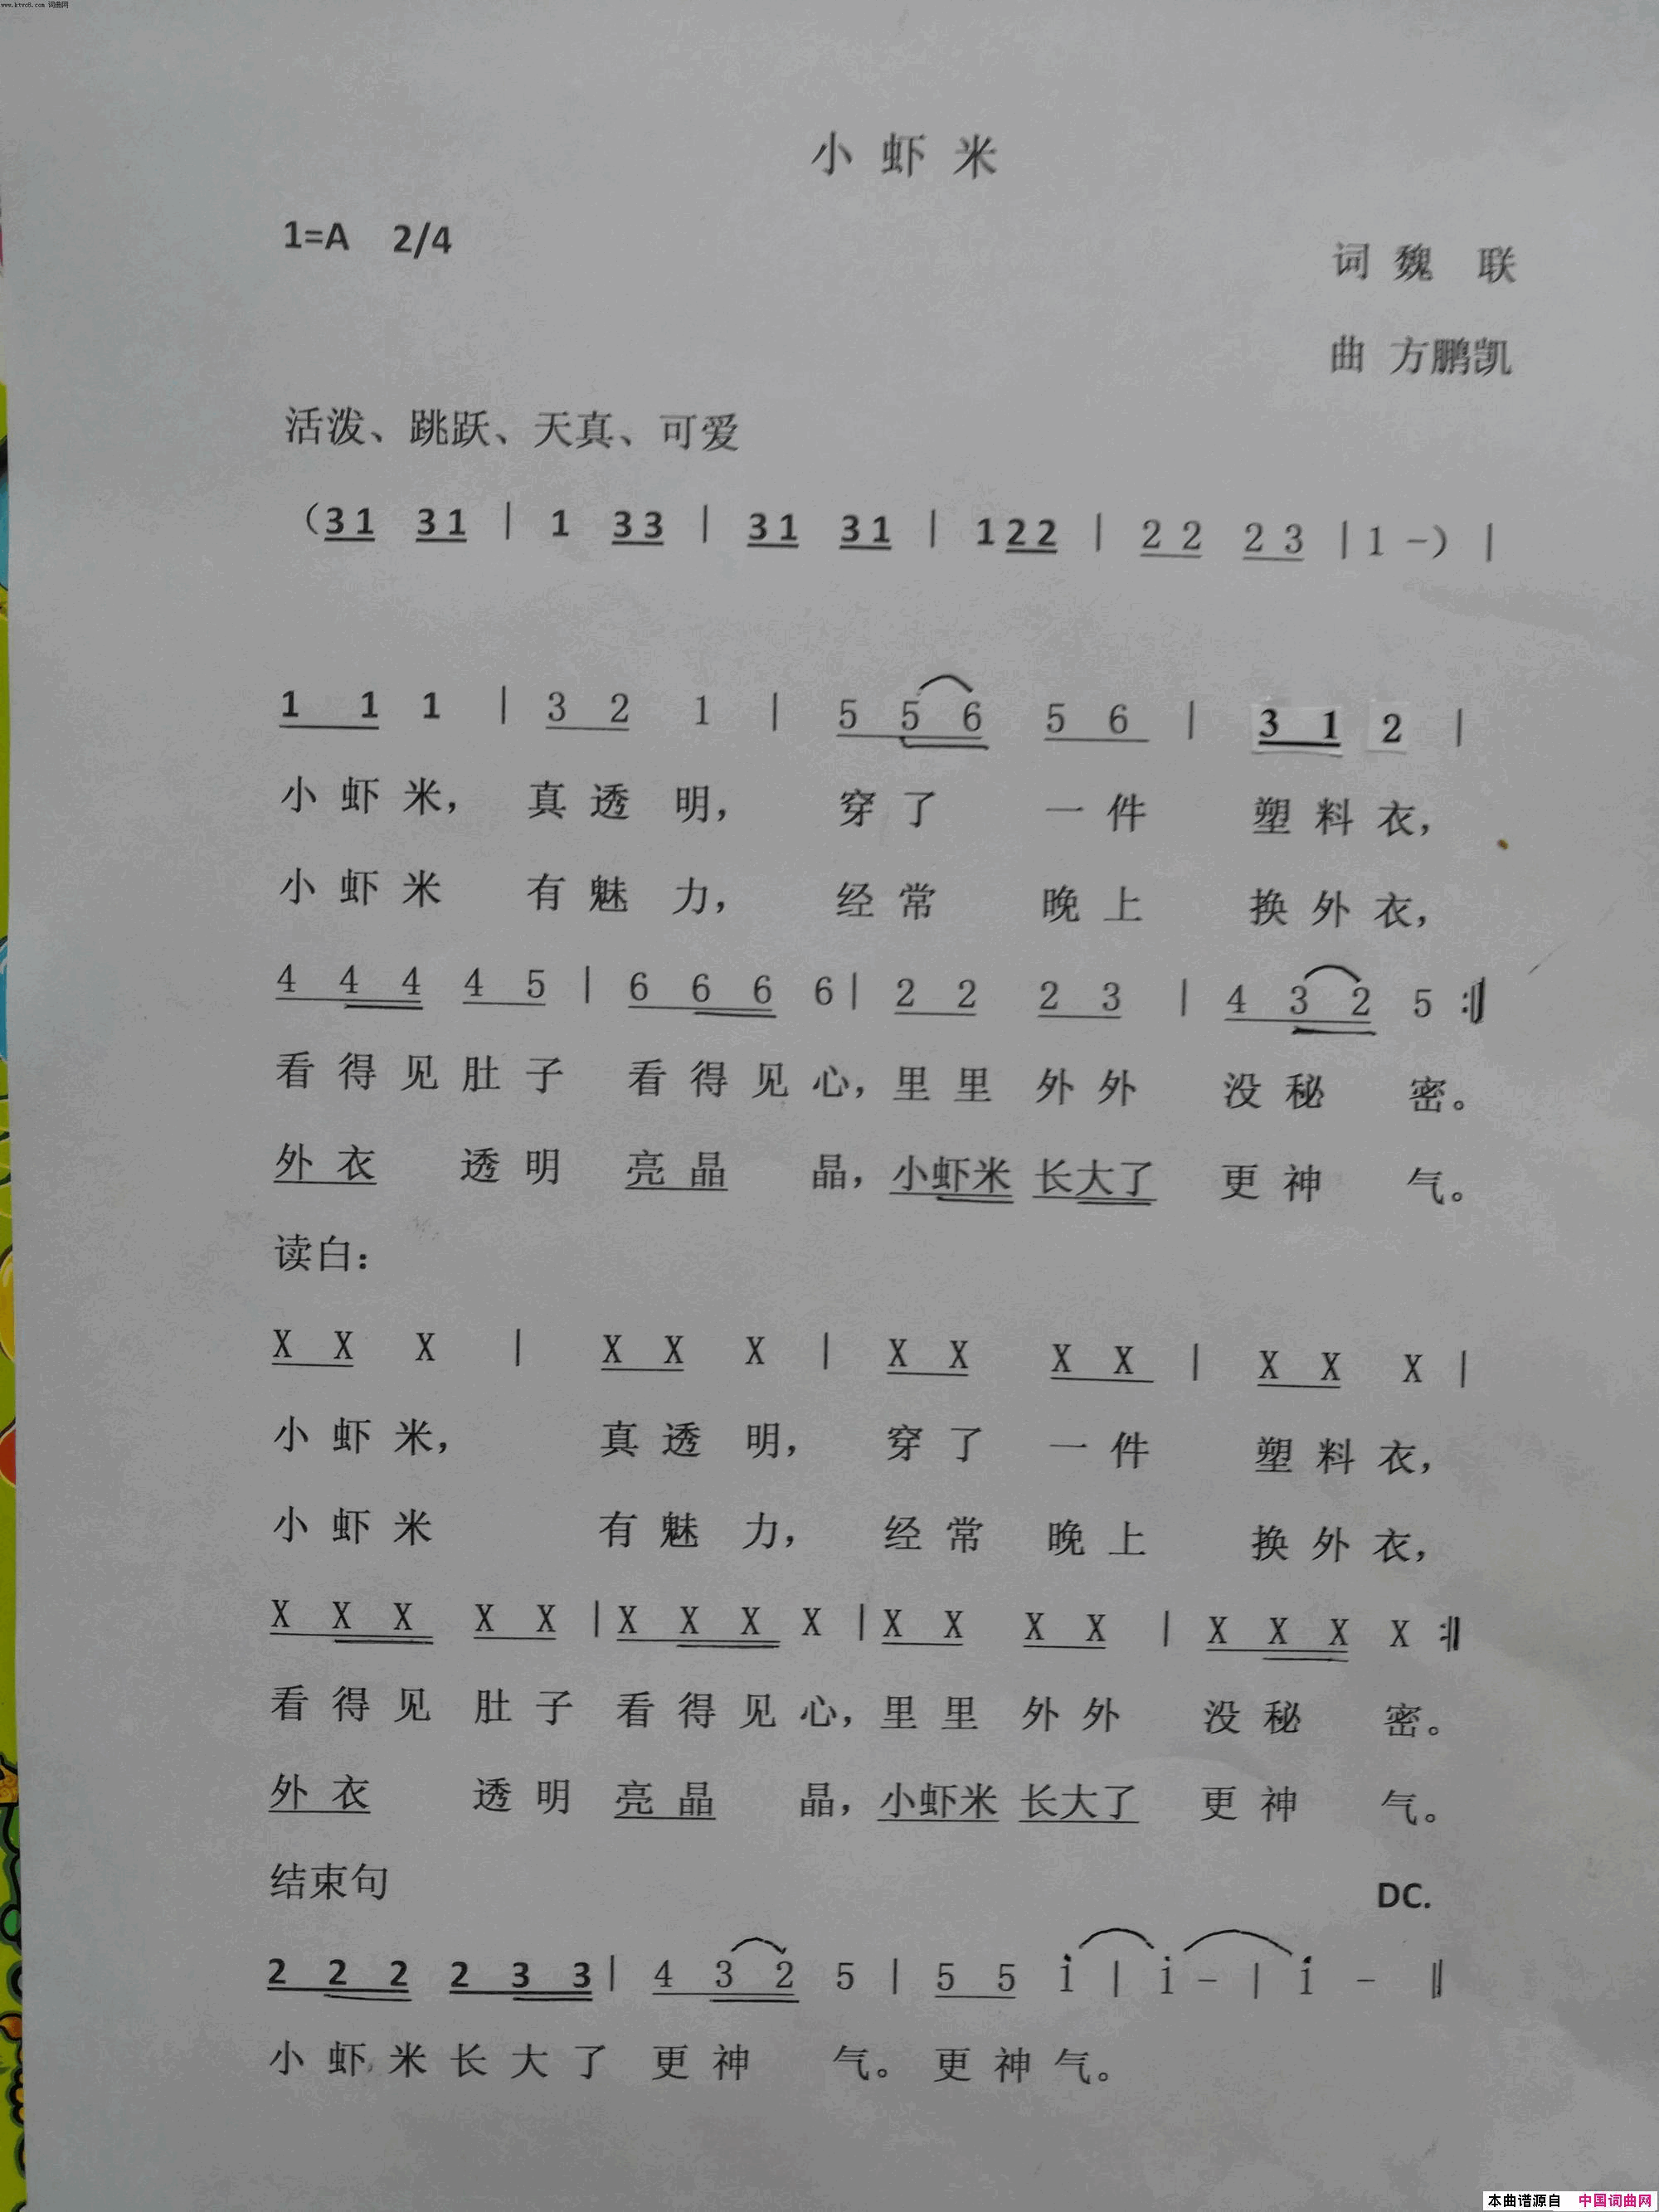 www.ktvc8.com 词曲网
小 虾 米
1=A 2/4
词 魏 联
曲 方鹏凯
活泼、跳跃、天真、可爱
（3 1 3 1 | 1 3 3 | 3 1 3 1 | 1 2 2 | 2 2 2 3 | 1 -） |
1 1 1 | 3 2 1 | 5 5 6 5 6 | 3 1 2 |
小 虾 米， 真 透 明， 穿 了 一 件 塑 料 衣，
小 虾 米 有 魅 力， 经 常 晚 上 换 外 衣，
4 4 4 4 5 | 6 6 6 6 | 2 2 2 3 | 4 3 2 5 :‖
看 得 见 肚 子 看 得 见 心， 里 里 外 外 没 秘 密。
外 衣 透 明 亮 晶 晶， 小虾米 长大了 更 神 气。
读白：
X X X | X X X | X X X X | X X X |
小 虾 米， 真 透 明， 穿 了 一 件 塑 料 衣，
小 虾 米 有 魅 力， 经 常 晚 上 换 外 衣，
X X X X X | X X X X | X X X X | X X X X :‖
看 得 见 肚 子 看 得 见 心， 里 里 外 外 没 秘 密。
外 衣 透 明 亮 晶 晶， 小虾米 长大了 更 神 气。
结束句 DC.
2 2 2 2 3 3 | 4 3 2 5 | 5 5 i | i - | i - ‖
小 虾 米 长 大 了 更 神 气。 更 神 气。
本曲谱源自 中国词曲网